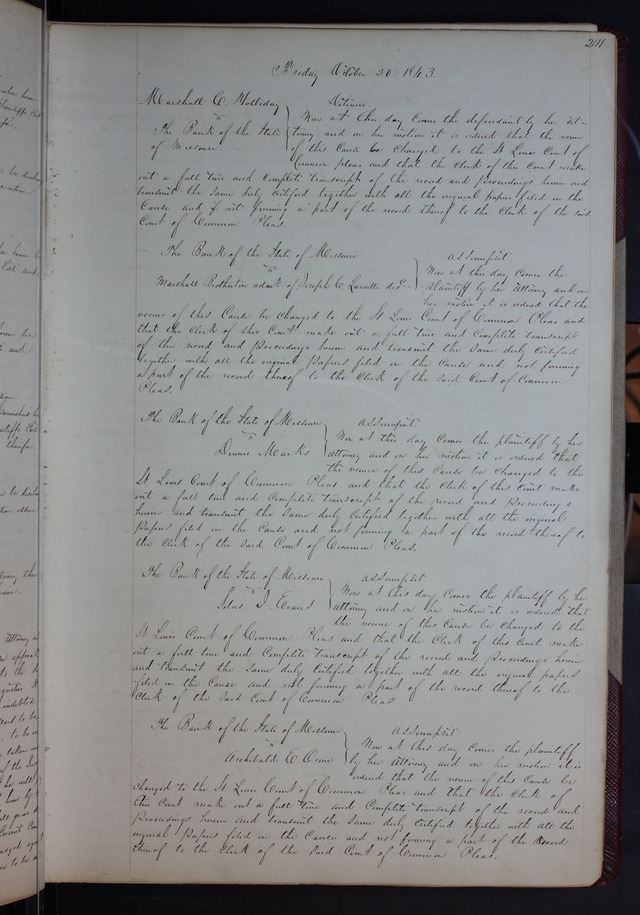 211
Friday October 20 1843.
Marshall C. Holliday
vs
The Bank of the State
of Missouri
Detinue
Now at this day comes the defendant by her at-
torney and on her motion it is ordered that the venue
of this Cause be Changed to the St Louis Court of
Common pleas and that the Clerk of this Court make
out a full true and Complete transcript of the record and proceedings herein and
transmit the Same duly Certified together with all the original papers filed in the
Cause and if not forming a part of the record thereof to the Clerk of the said
Court of Common Pleas.
The Bank of the State of Missouri
vs
Marshall Brotherton admr. of Joseph C. Laveille decd
assumpsit
Now at this day comes the
plaintiff by her attorney and on
her motion it is ordered that the
venue of this Cause be changed to the St Louis Court of Common Pleas and
that the Clerk of this Court make out a full true and Complete transcript
of the record and proceedings herein and transmit the Same duly Certified
together with all the original papers filed in the Cause and not forming
a part of the record thereof to the Clerk of the said Court of Common
Pleas.
The Bank of the State of Missouri
vs
Dennis Marks
assumpsit
Now at this day comes the plaintiff by her
attorney and on her motion it is ordered that
the venue of this Cause be changed to the
St Louis Court of Common Pleas and that the Clerk of this Court make
out a full true and Complete transcript of the record and proceedings
herein and transmit the Same duly Certified together with all the original
papers filed in the Cause and not forming a part of the record thereof to
the Clerk of the said Court of Common Pleas.
The Bank of the State of Missouri
vs
Silas J. Evans
assumpsit
Now at this day Comes the plaintiff by her
attorney and on her motion it is ordered that
the venue of this Cause be changed to the
St Louis Court of Common Pleas and that the Clerk of this Court make
out a full true and Complete transcript of the record and proceedings herein
and transmit the Same duly Certified together with all the original papers
filed in the Cause and not forming a part of the record thereof to the
Clerk of the said Court of Common Pleas
The Bank of the State of Missouri
vs
Archibald C. Orme
assumpsit
Now at this day Comes the plaintiff
by her attorney and on her motion it is
ordered that the venue of this Cause be
changed to the St Louis Court of Common Pleas and that the Clerk of
this Court make out a full true and Complete transcript of the record and
proceedings herein and transmit the Same duly Certified together with all the
original papers filed in the Cause and not forming a part of the record
thereof to the Clerk of the said Court of Common Pleas.